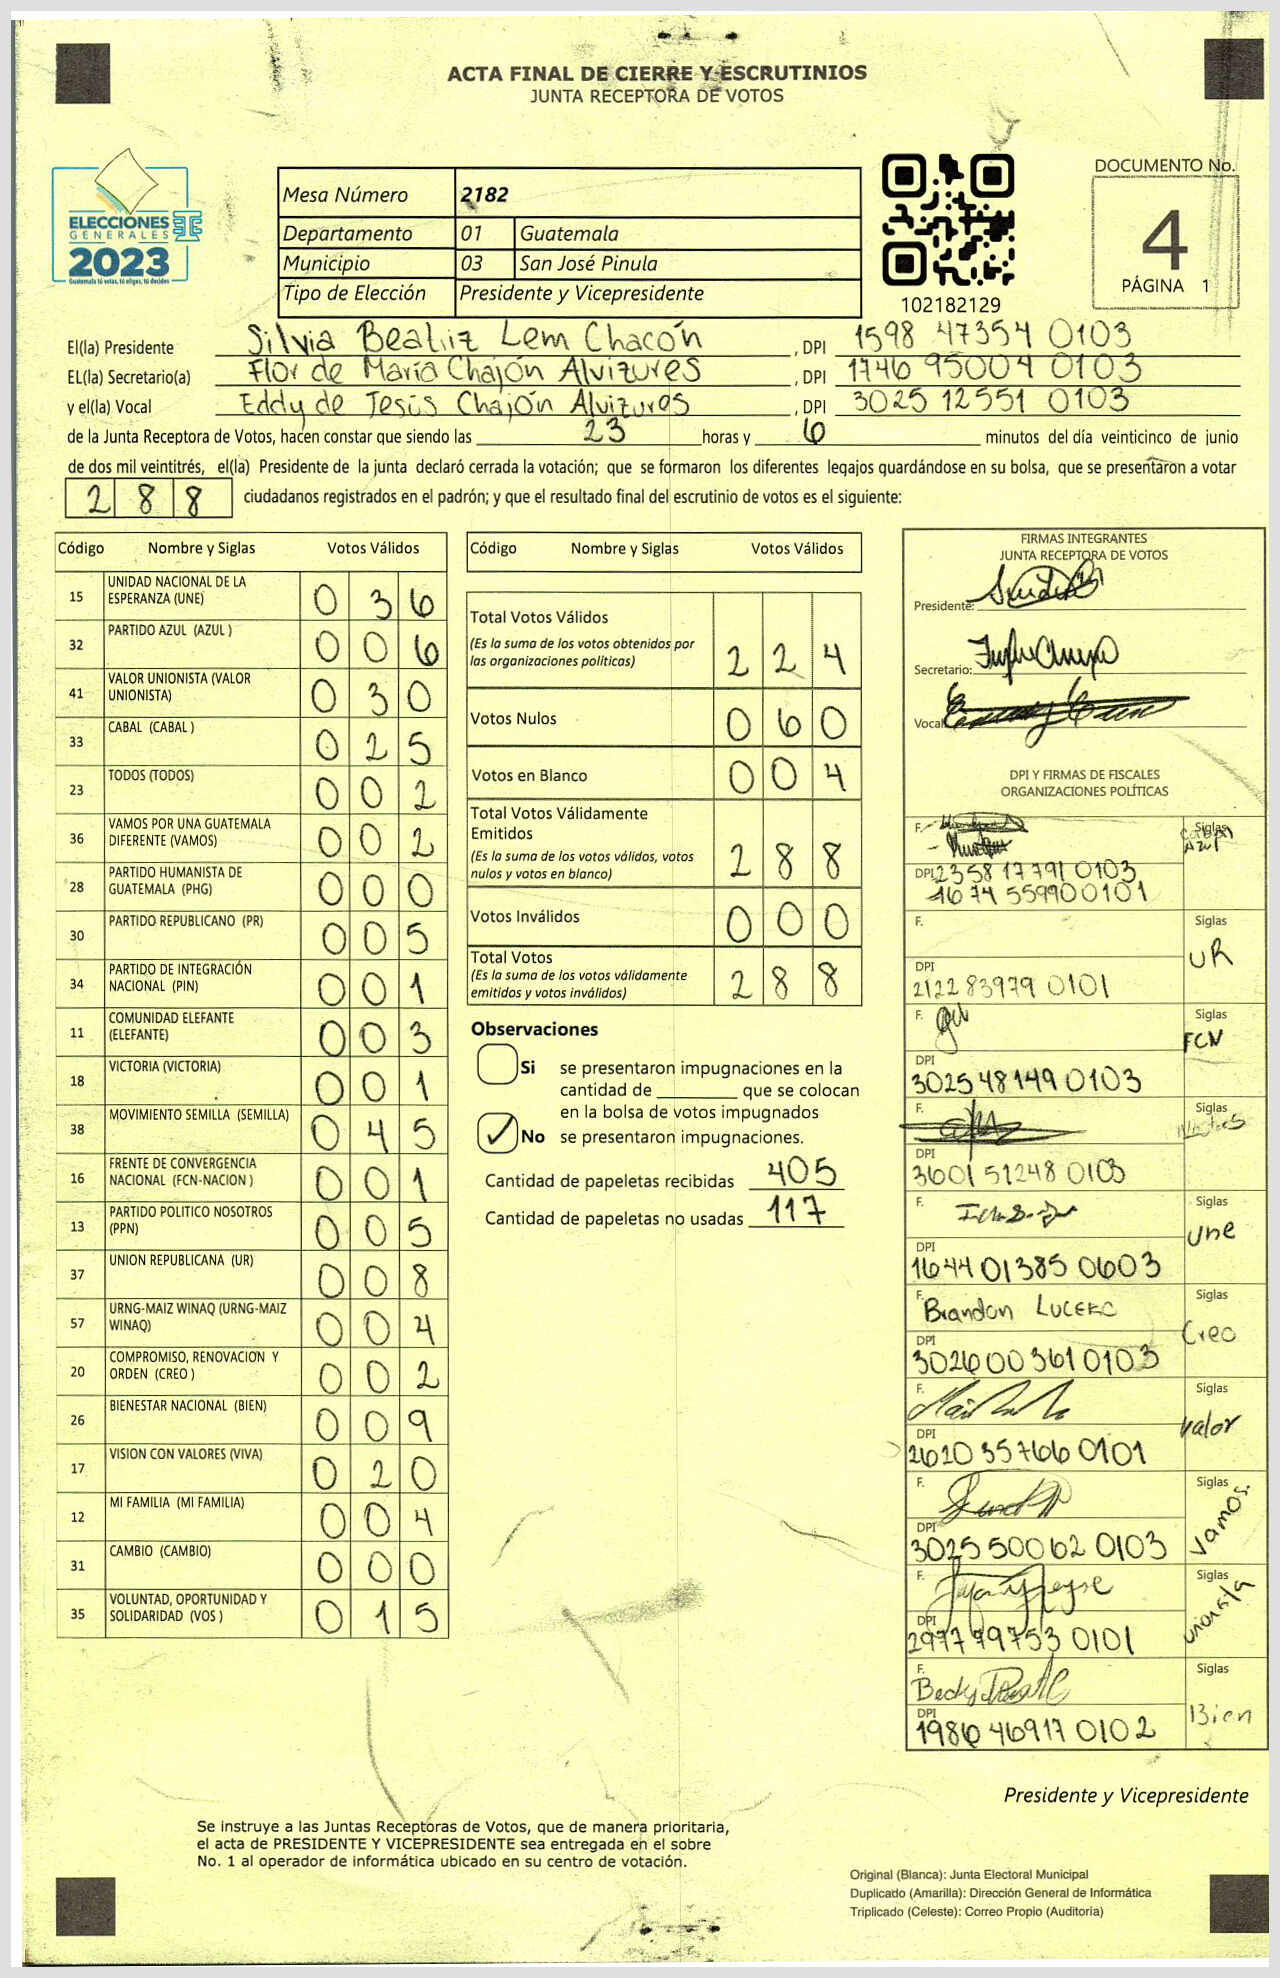 ACTA FINAL DE CIERRE Y ESCRUTINIOS
JUNTA RECEPTORA DE VOTOS
ELECCIONES
GENERALES
2023
Guatemala tú votas, tú eliges, tú decides
Mesa Número 2182
Departamento 01 Guatemala
Municipio 03 San José Pinula
Tipo de Elección Presidente y Vicepresidente
102182129
DOCUMENTO No.
4
PÁGINA 1
El(la) Presidente Silvia Beatriz Lem Chacón , DPI 1598 47354 0103
EL(la) Secretario(a) Flor de María Chajón Alvizures , DPI 1746 95004 0103
y el(la) Vocal Eddy de Jesús Chajón Alvizures , DPI 3025 12551 0103
de la Junta Receptora de Votos, hacen constar que siendo las 23 horas y 6 minutos del día veinticinco de junio
de dos mil veintitrés, el(la) Presidente de la junta declaró cerrada la votación; que se formaron los diferentes legajos guardándose en su bolsa, que se presentaron a votar
288 ciudadanos registrados en el padrón; y que el resultado final del escrutinio de votos es el siguiente:
Código Nombre y Siglas Votos Válidos
15 UNIDAD NACIONAL DE LA ESPERANZA (UNE) 036
32 PARTIDO AZUL (AZUL ) 006
41 VALOR UNIONISTA (VALOR UNIONISTA) 030
33 CABAL (CABAL ) 025
23 TODOS (TODOS) 002
36 VAMOS POR UNA GUATEMALA DIFERENTE (VAMOS) 002
28 PARTIDO HUMANISTA DE GUATEMALA (PHG) 000
30 PARTIDO REPUBLICANO (PR) 005
34 PARTIDO DE INTEGRACIÓN NACIONAL (PIN) 001
11 COMUNIDAD ELEFANTE (ELEFANTE) 003
18 VICTORIA (VICTORIA) 001
38 MOVIMIENTO SEMILLA (SEMILLA) 045
16 FRENTE DE CONVERGENCIA NACIONAL (FCN-NACION ) 001
13 PARTIDO POLITICO NOSOTROS (PPN) 005
37 UNION REPUBLICANA (UR) 008
57 URNG-MAIZ WINAQ (URNG-MAIZ WINAQ) 004
20 COMPROMISO, RENOVACION Y ORDEN (CREO ) 002
26 BIENESTAR NACIONAL (BIEN) 009
17 VISION CON VALORES (VIVA) 020
12 MI FAMILIA (MI FAMILIA) 004
31 CAMBIO (CAMBIO) 000
35 VOLUNTAD, OPORTUNIDAD Y SOLIDARIDAD (VOS ) 015
Código Nombre y Siglas Votos Válidos
Total Votos Válidos 224
(Es la suma de los votos obtenidos por
las organizaciones políticas)
Votos Nulos 060
Votos en Blanco 004
Total Votos Válidamente
Emitidos 288
(Es la suma de los votos válidos, votos
nulos y votos en blanco)
Votos Inválidos 000
Total Votos 288
(Es la suma de los votos válidamente
emitidos y votos inválidos)
Observaciones
Si se presentaron impugnaciones en la
cantidad de ________ que se colocan
en la bolsa de votos impugnados
✓ No se presentaron impugnaciones.
Cantidad de papeletas recibidas 405
Cantidad de papeletas no usadas 117
FIRMAS INTEGRANTES
JUNTA RECEPTORA DE VOTOS
Presidente:
Secretario:
Vocal
DPI Y FIRMAS DE FISCALES
ORGANIZACIONES POLÍTICAS
F. Siglas
Azul
DPI 2358 17791 0103
1674 55990 0101
F. Siglas
UR
DPI
2122 83979 0101
F. Siglas
FCN
DPI
3025 48149 0103
F. Siglas
DPI
3601 51248 0103
F. Siglas
Une
DPI
1644 01385 0603
F. Brandon Lucero Siglas
Creo
DPI
3026 00361 0103
F. Siglas
Valor
DPI
2620 35766 0101
F. Siglas
Vamos.
DPI
3025 50062 0103
F. Siglas
unionista
DPI
2977 79753 0101
F. Becky Siglas
Bien
DPI
1986 46917 0102
Presidente y Vicepresidente
Se instruye a las Juntas Receptoras de Votos, que de manera prioritaria,
el acta de PRESIDENTE Y VICEPRESIDENTE sea entregada en el sobre
No. 1 al operador de informática ubicado en su centro de votación.
Original (Blanca): Junta Electoral Municipal
Duplicado (Amarilla): Dirección General de Informática
Triplicado (Celeste): Correo Propio (Auditoría)